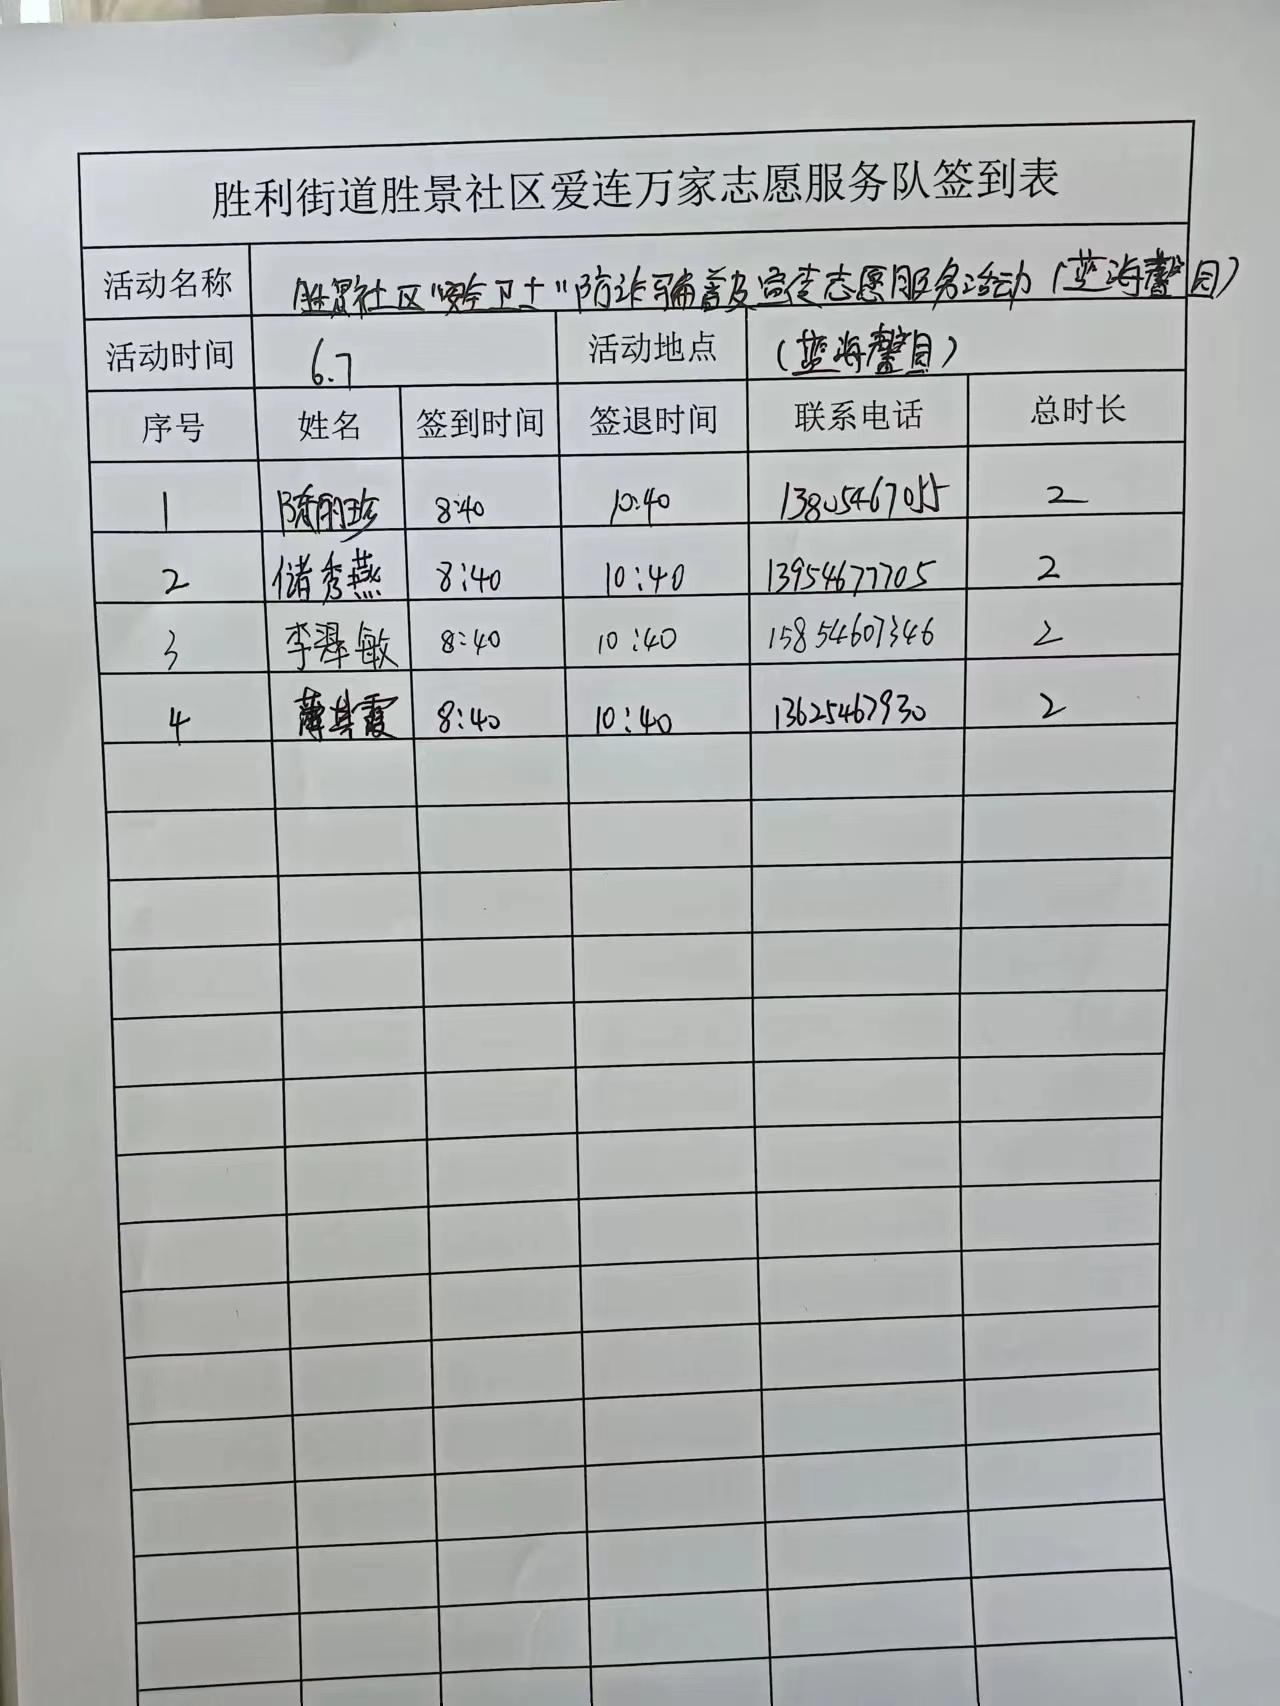 胜利街道胜景社区爱连万家志愿服务队签到表
活动名称 胜景社区“安全卫士”防诈骗普及宣传志愿服务活动(蓝海馨园)
活动时间 6.7 活动地点 (蓝海馨园)
序号 姓名 签到时间 签退时间 联系电话 总时长
1 陈丽珍 8:40 10:40 2
2 储秀燕 8:40 10:40 13954677705 2
3 李翠敏 8:40 10:40 15854607346 2
4 薄其霞 8:40 10:40 13625467930 2